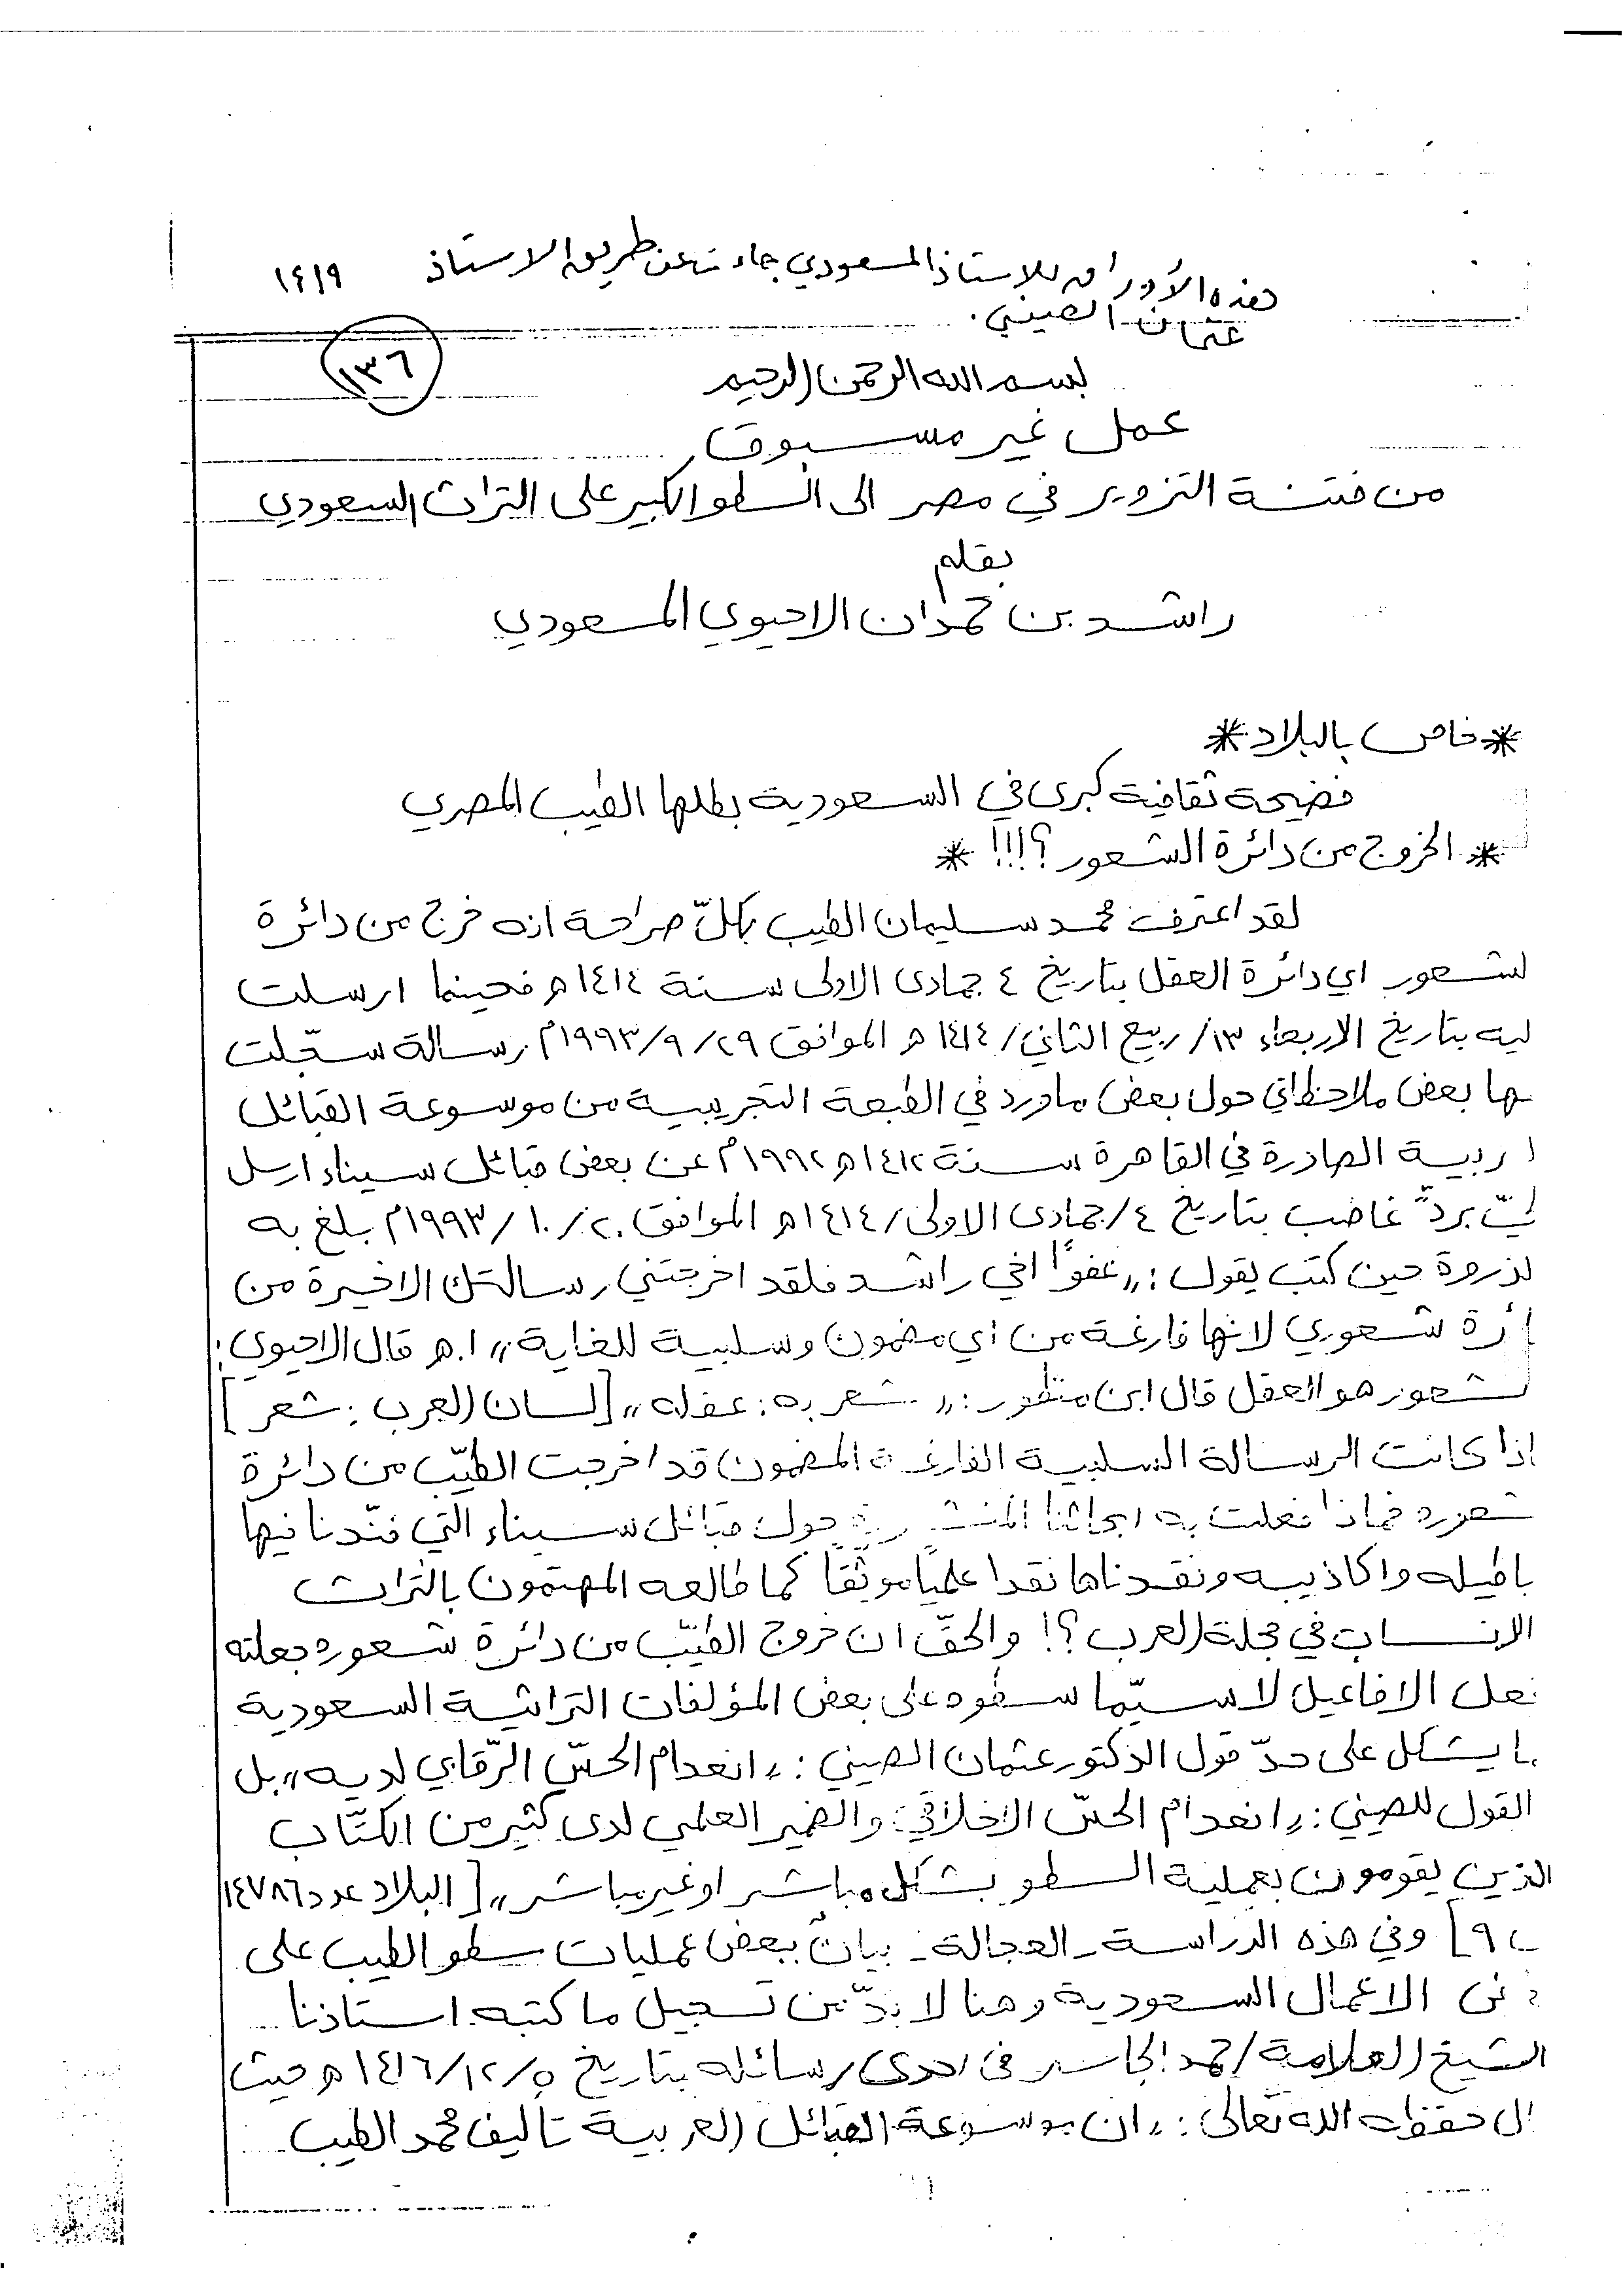 هذه الأوراق للاستاذ المسعودي جاءت عن طريق الاستاذ ١٤١٩
عثمان الصيني.
١٣٦
بسم الله الرحمن الرحيم
عمل غير مسبوق
من فتنة التزوير في مصر الى السطو الكبير على التراث السعودي
بقلم
راشد بن حمدان الاحيوي المسعودي
* خاص بالبلاد *
فضيحة ثقافية كبرى في السعودية بطلها الطيب المصري
* الخروج من دائرة الشعور ؟!!! *
لقد اعترف محمد سليمان الطيب بكلّ صراحة انه خرج من دائرة
لشعور اي دائرة العقل بتاريخ ٤ جمادى الاولى سنة ١٤١٤ه فحينما ارسلت
ليه بتاريخ الاربعاء ١٣/ ربيع الثاني/ ١٤١٤ ه الموافق ٢٩/ ٩/ ١٩٩٣م رسالة سجّلت
بها بعض ملاحظاتي حول بعض ما ورد في الطبعة التجريبية من موسوعة القبائل
ربية الصادرة في القاهرة سنة ١٤١٢ه ١٩٩٢م عن بعض قبائل سيناء ارسل
ليّ بردّ غاضب بتاريخ ٤ /جمادى الاولى/ ١٤١٤ه الموافق ٢٠/ ١٠/ ١٩٩٣م بلغ به
لذروة حين كتب يقول: "عفوًا اخي راشد فلقد اخرجتني رسالتك الاخيرة من
ائرة شعوري لانها فارغة من أي مضمون وسلبية للغاية" ا.ه قال الاحيوي:
لشعور هو العقل قال ابن منظور: "شعر به: عقله" [لسان العرب: شعر]
اذا كانت الرسالة السلبية الفارغة المضمون قد اخرجت الطيّب من دائرة
شعوره فماذا فعلت به ابحاثنا المنشورة حول قبائل سيناء التي فنّدنا فيها
باطيله واكاذيبه ونقدناها نقدا علميًا موثّقًا كما طالعه المهتمون بالتراث
الانساب في مجلة العرب ؟! والحقّ ان خروج الطيّب من دائرة شعوره جعلته
فعل الافاعيل لاسيّما سطوه على بعض المؤلفات التراثية السعودية
ما يشكل على حدّ قول الدكتور عثمان الصيني: "انعدام الحسّ الرّقابي لديه" بل
القول للصيني: "انعدام الحسّ الاخلاقي والضمير العلمي لدى كثير من الكتّاب
الذين يقومون بعملية السطو بشكل مباشر او غير مباشر" [البلاد عدد ١٤٧٨٦
٩] وفي هذه الدراسة - العجالة - بيانٌ ببعض عمليات سطو الطيب على
الاعمال السعودية وهنا لا بدّ من تسجيل ما كتبه استاذنا
الشيخ العلامة / حمد الجاسر في احدى رسائله بتاريخ ٥/ ١٢/ ١٤١٦ ه حيث
ال حفظه الله تعالى: "ان موسوعة القبائل العربية تاليف محمد الطيب